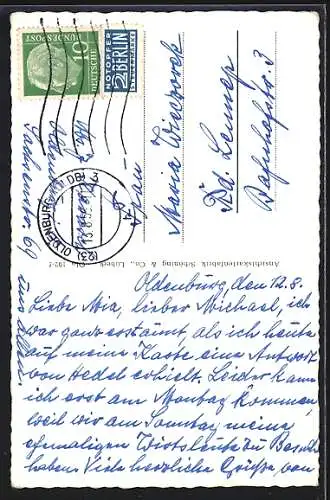 Oldenburg, den 12.8.
Liebe Mia, lieber Michael, ich
war ganz erstaunt, als ich heute
auf meine Karte eine Antwort
von Hedel erhielt. Leider kann
ich erst am Montag kommen,
weil wir am Sonntag meine
ehemaligen Wirtsleute zu Besuch
haben. Viele herzliche Grüße, von
10
DEUTSCHE
BUNDESPOST
NOTOPFER
2 BERLIN
STEUERMARKE
(23) OLDENBURG (OLDB) 3
Ansichtskartenfabrik Schöning & Co., Lübeck
Frau
Maria
Rd. Lennep
Bahnhofstr. 3